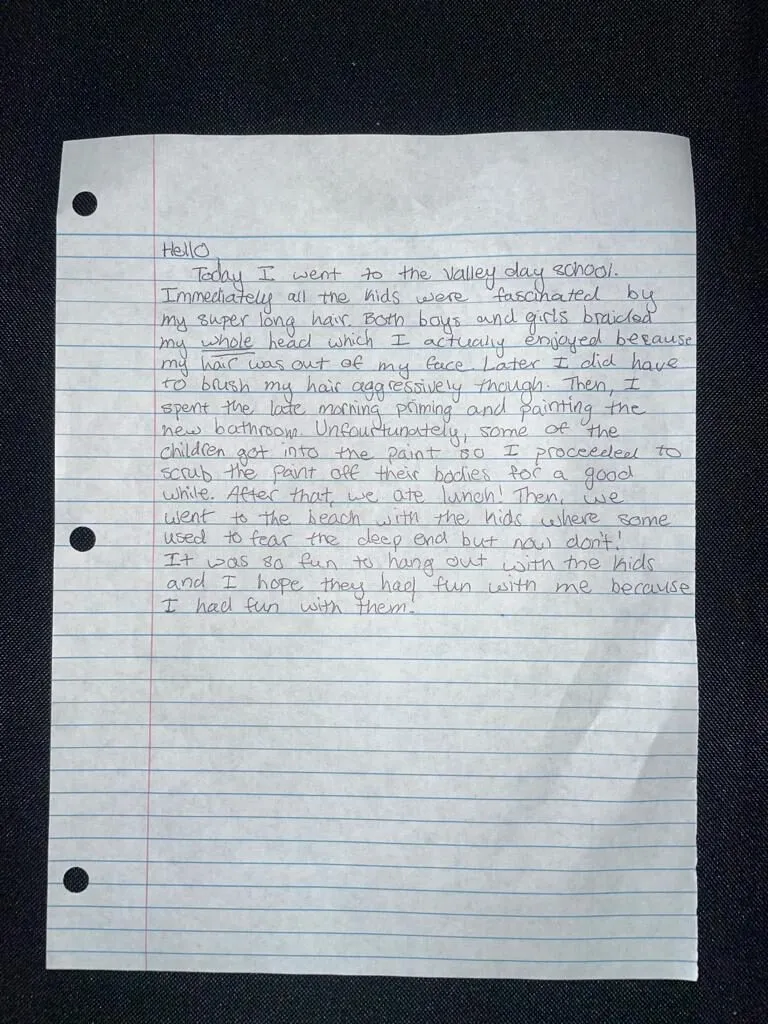 Hello,
Today I went to the valley day school.
Immediately all the kids were fascinated by
my super long hair. Both boys and girls braided
my whole head which I actually enjoyed because
my hair was out of my face. Later I did have
to brush my hair aggressively though. Then, I
spent the late morning priming and painting the
new bathroom. Unfourtunately, some of the
children got into the paint so I proceeded to
scrub the paint off their bodies for a good
while. After that, we ate lunch! Then, we
went to the beach with the kids where some
used to fear the deep end but now don't!
It was so fun to hang out with the kids
and I hope they had fun with me because
I had fun with them.